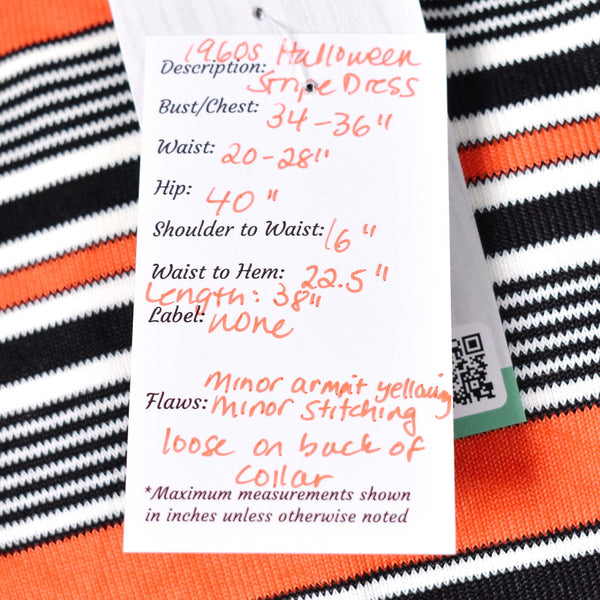 Description: 1960s Halloween
Stripe Dress
Bust/Chest: 34-36"
Waist: 20-28"
Hip: 40"
Shoulder to Waist: 16"
Waist to Hem: 22.5"
Length: 38"
Label: none
Minor armpit yellowing
Flaws: Minor stitching
loose on back of
collar
*Maximum measurements shown
in inches unless otherwise noted